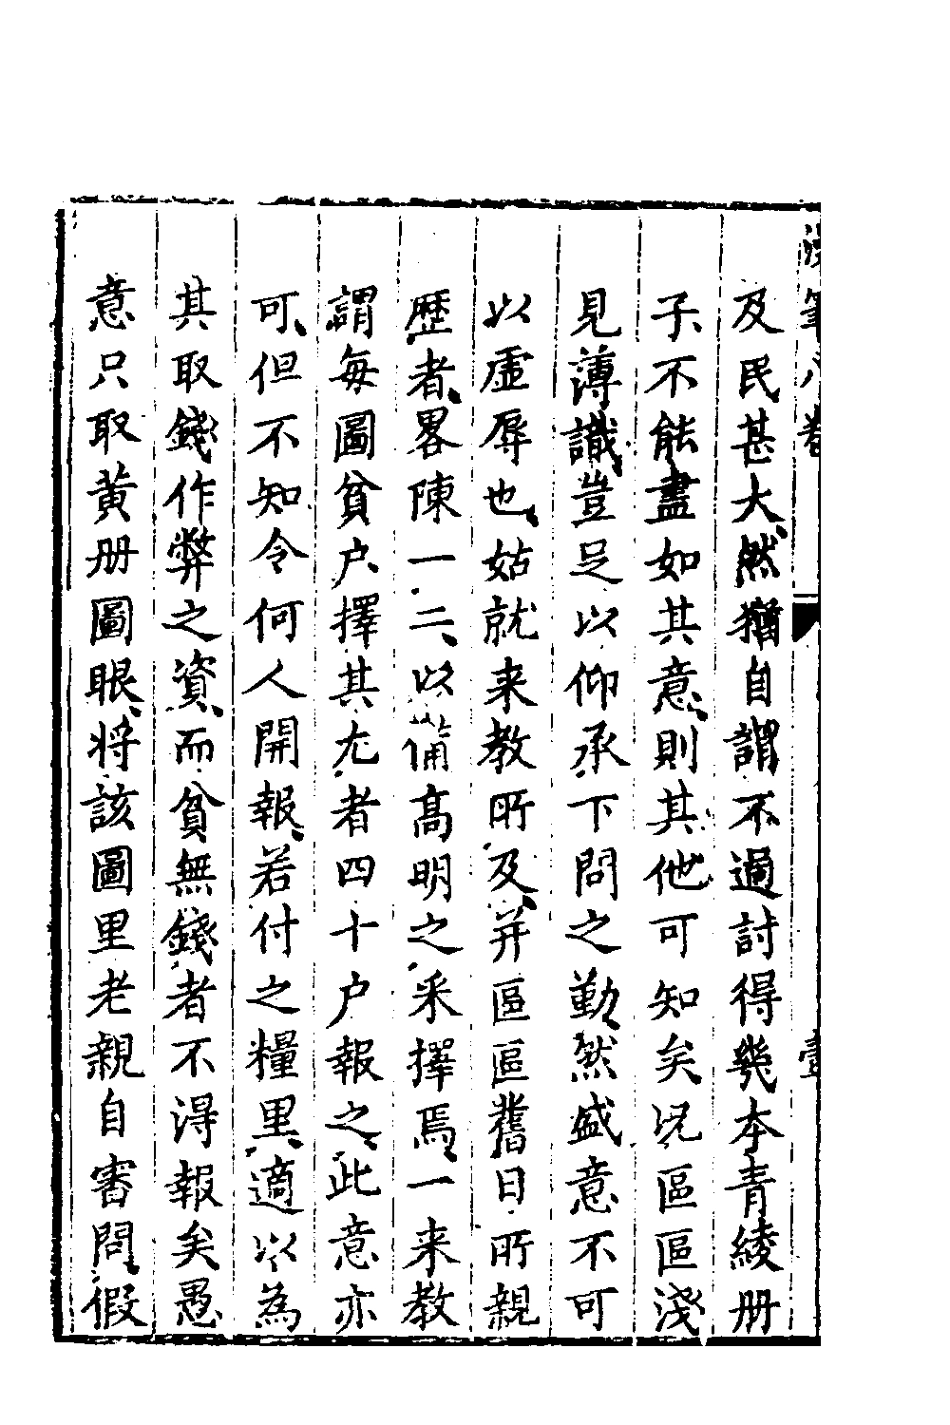 筆八卷
及民甚大然猶自謂不過討得幾本青綾册
子不能盡如其意則其他可知矣况區區淺
見薄識豈足以仰承下問之勤然盛意不可
以虛辱也姑就来教所及并區區舊日所親
歷者畧陳一二以備高明之采擇焉一来教
謂每圖貧户擇其尤者四十户報之此意亦
可但不知令何人開報若付之糧里適以為
其取錢作弊之資而貧無錢者不得報矣愚
意只取黄册圖眼將該圖里老親自審問假